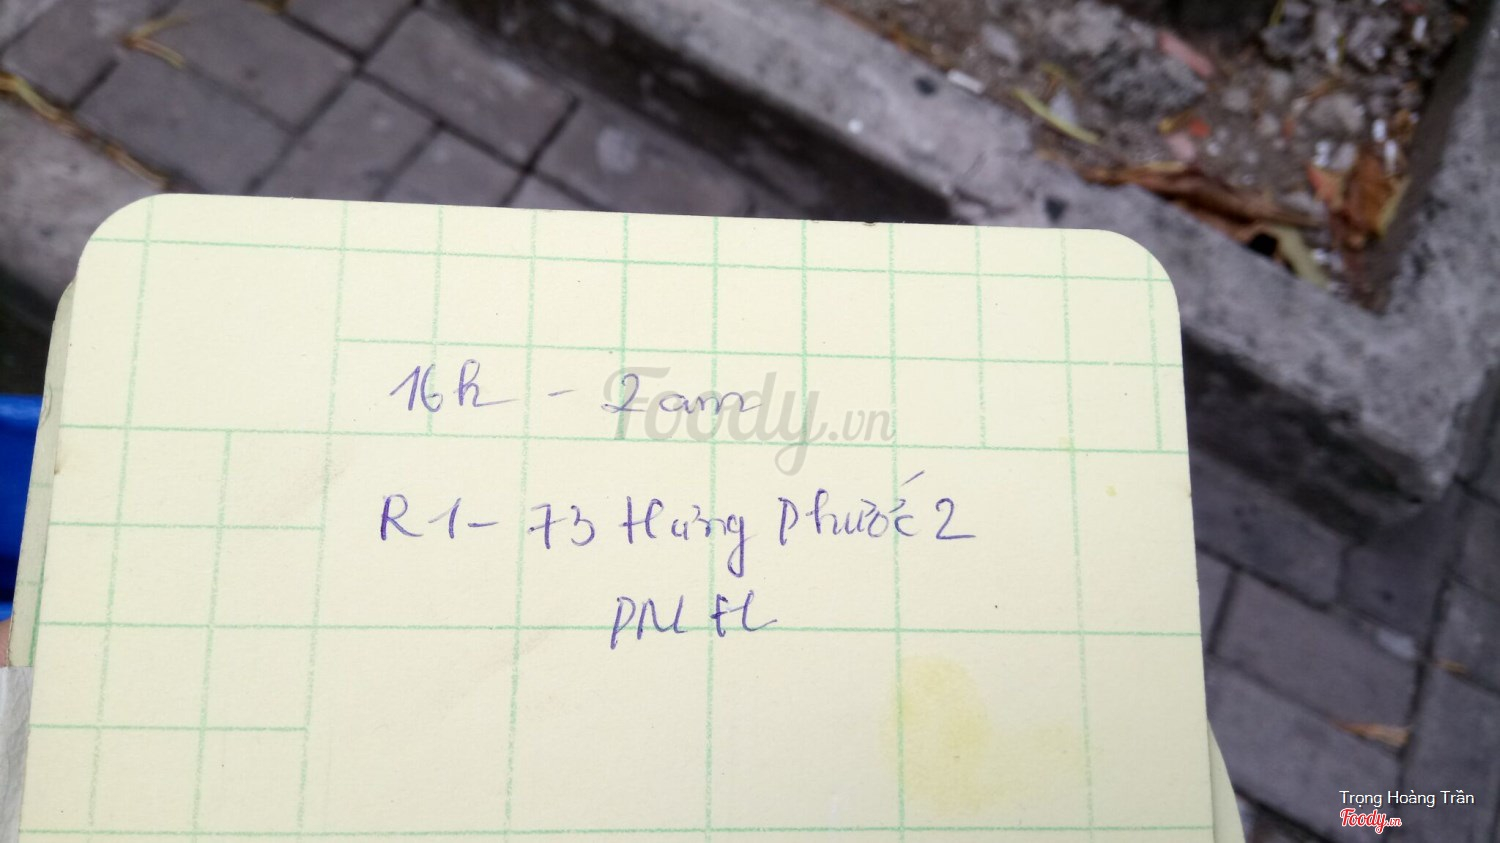 16h - 2am
R1-73 Hưng Phước 2
PMH
Foody.vn
Trọng Hoàng Trần
Foody.vn